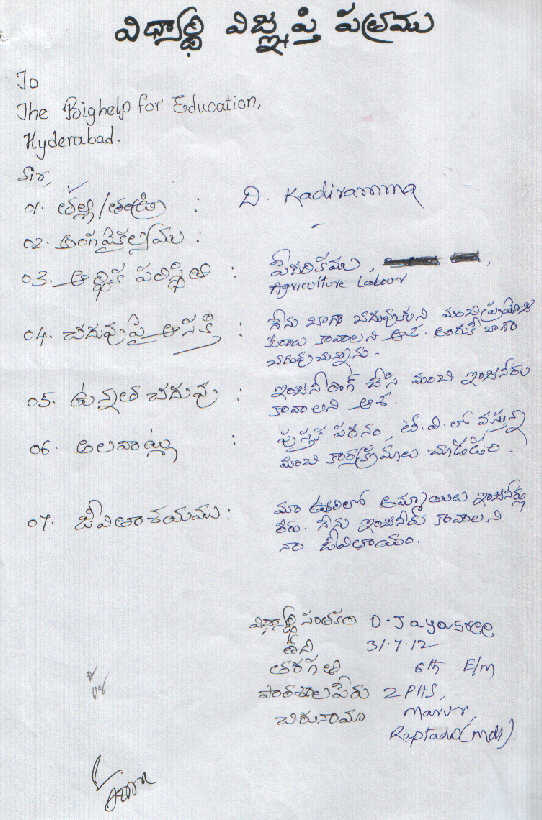 విద్యార్థి విజ్ఞప్తి పత్రము
To
The Bighelp for Education,
Hyderabad.
Sir,
01. తల్లి/తండ్రి : D. Kadiramma
02. అంగవైకల్యము :
03. ఆర్థిక పరిస్థితి : పేదరికము,
Agriculture Labour
04. చదువుపై ఆసక్తి : నేను బాగా చదువుకుని మంచి
కావాలని ఆశ. అందుకే బాగా
చదువుచున్నాను.
05. ఉన్నత చదువు : ఇంజనీరింగ్ చేసి మంచి ఇంజనీరు
కావాలని ఆశ
06. అలవాట్లు : పుస్తక పఠనం, టి.వి.లో వస్తున్న
మంచి కార్యక్రమాలు చూడడం.
07. జీవితాశయము : మా ఊరిలో అమ్మాయిలు ఇంజనీర్లు
లేరు. నేను ఇంజనీరు కావాలని
నా జీవితాశయం.
విద్యార్థి సంతకం D. Jayasree
తేది 31.7.12
తరగతి 6th E/M
పాఠశాల పేరు ZPHS,
చిరునామా Marur,
Raptadu(Mdl)